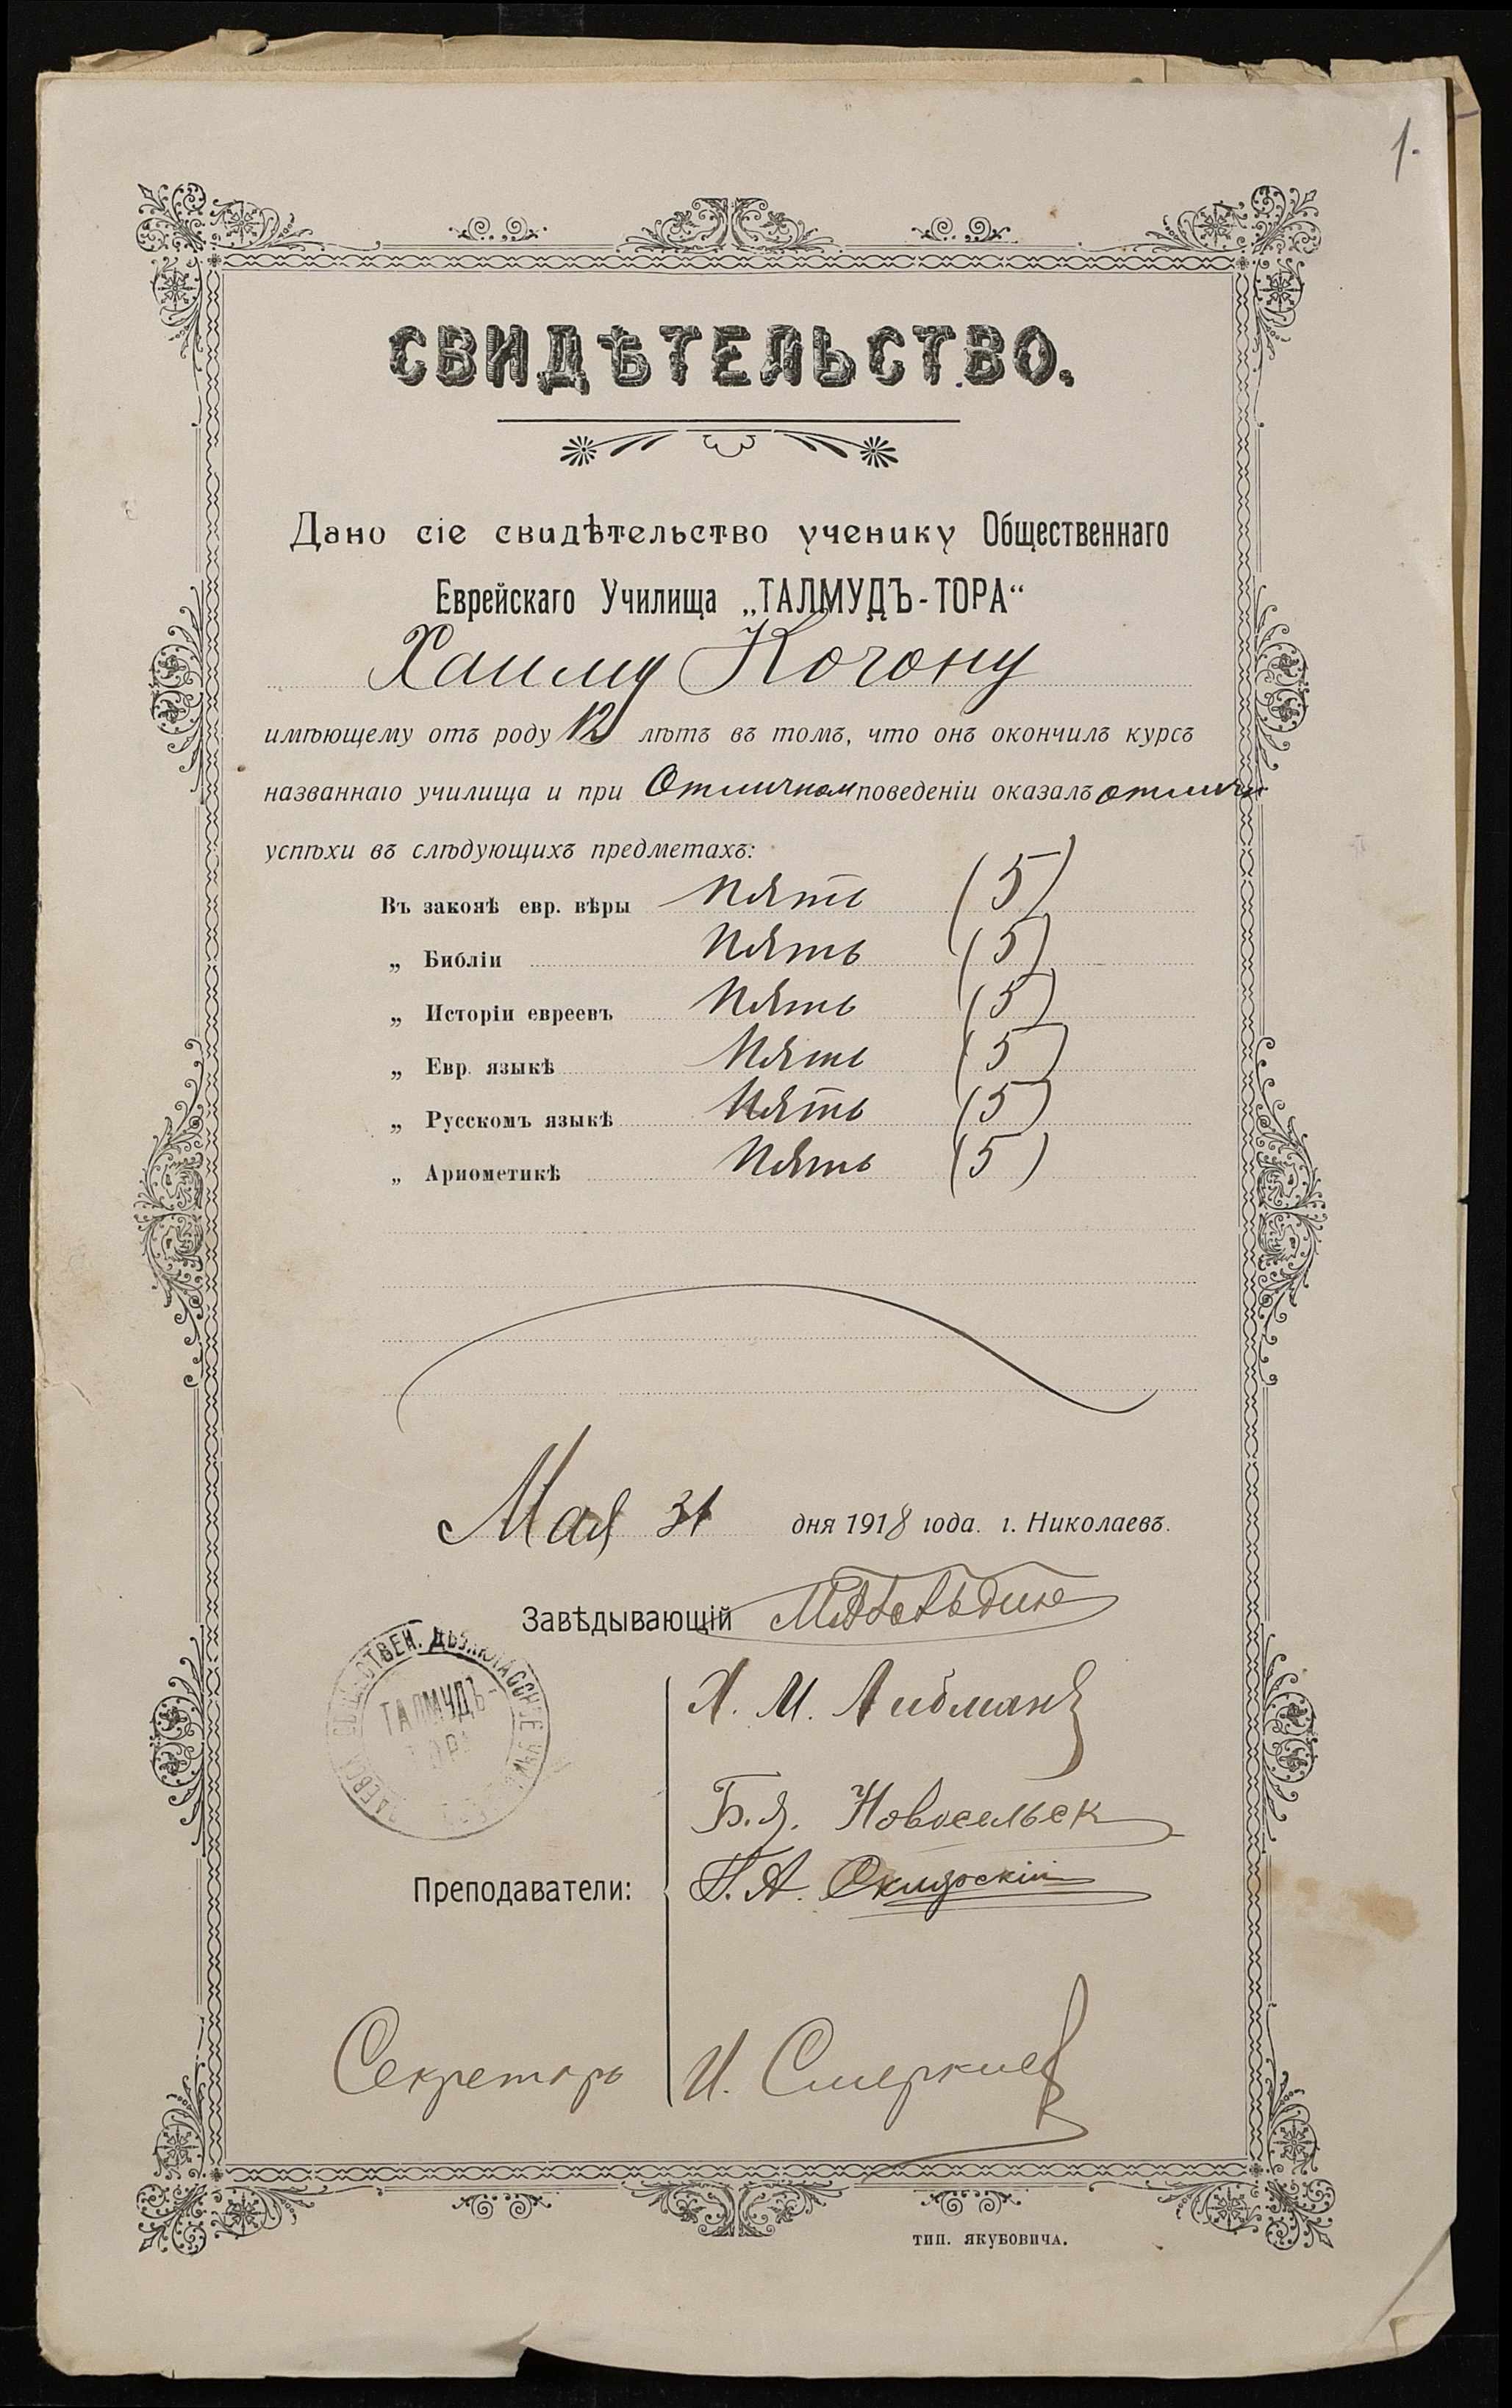 1.
СВИДѢТЕЛЬСТВО.
Дано сіе свидѣтельство ученику Общественнаго
Еврейскаго Училища „ТАЛМУДЪ-ТОРА“
Хаиму Когону
имѣющему отъ роду 12 лѣтъ въ томъ, что онъ окончилъ курсъ
названнаго училища и при Отличном поведеніи оказалъ отличн
успѣхи въ слѣдующихъ предметахъ:
Въ законѣ евр. вѣры пять (5)
„ Библіи пять (5)
„ Исторіи евреевъ пять (5)
„ Евр. языкѣ пять (5)
„ Русскомъ языкѣ пять (5)
„ Ариѳметикѣ пять (5)
Мая 31 дня 1918 года. г. Николаевъ.
Завѣдывающій
ТАЛМУДЪ-
ТОРА
Х. М. Либманъ
Б. Я. Новосельск
Преподаватели:
Секретарь И.
тип. ЯКУБОВИЧА.